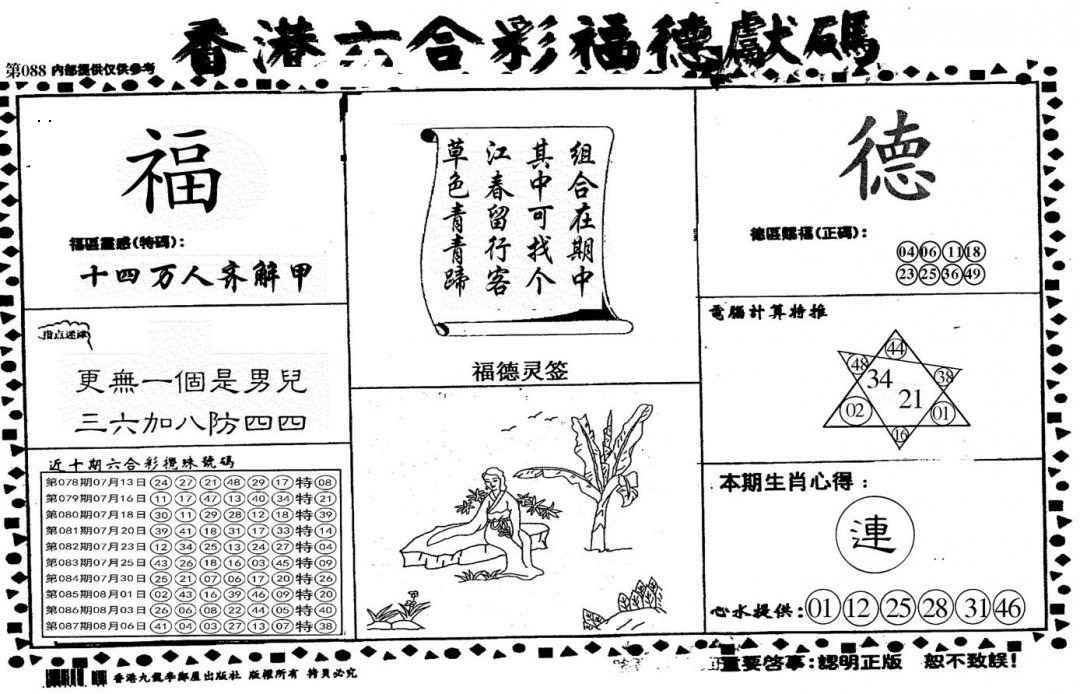 香港六合彩福德獻碼
第088 内部提供仅供参考
福
福區靈感(特碼):
十四万人齐解甲
指点迷津
更無一個是男兒
三六加八防四四
近十期六合彩攪珠號碼
第078期07月13日 24 27 21 48 29 17 特 08
第079期07月16日 11 17 47 13 40 34 特 21
第080期07月18日 30 11 29 28 12 18 特 39
第081期07月20日 39 41 18 31 17 33 特 14
第082期07月23日 12 34 25 13 24 27 特 04
第083期07月25日 43 26 18 16 03 45 特 09
第084期07月30日 25 21 07 06 17 20 特 26
第085期08月01日 02 43 16 39 46 09 特 20
第086期08月03日 26 06 08 22 44 05 特 40
第087期08月06日 41 04 03 27 13 07 特 38
组合在期中
其中可找个
江春留行客
草色青青蹄
福德灵签
德
德區賜福(正碼):
04 06 11 18
23 25 36 49
電腦計算特推
44
48
38
34
21
02
01
16
本期生肖心得:
連
心水提供: 01 12 25 28 31 46
香港九龍李鄭屋出版社 版權所有 拷貝必究
重要啓事:認明正版 恕不致誤!